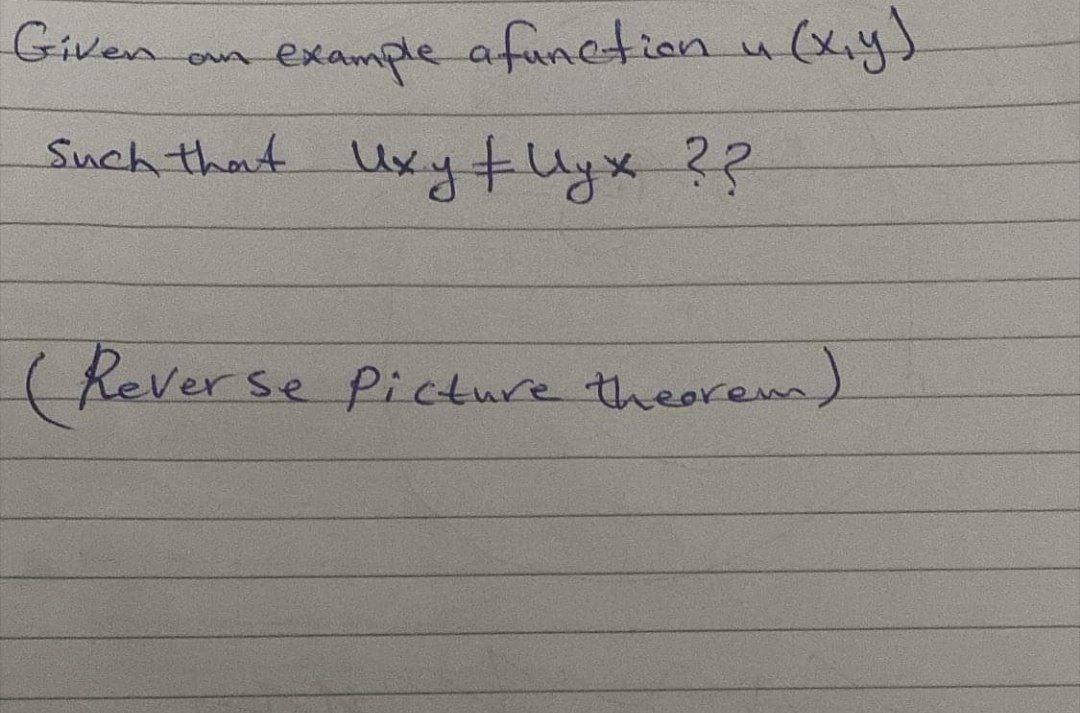 Given an example afunction u (x,y)
Such that Uxy ≠ Uyx ??
(Reverse Picture theorem)